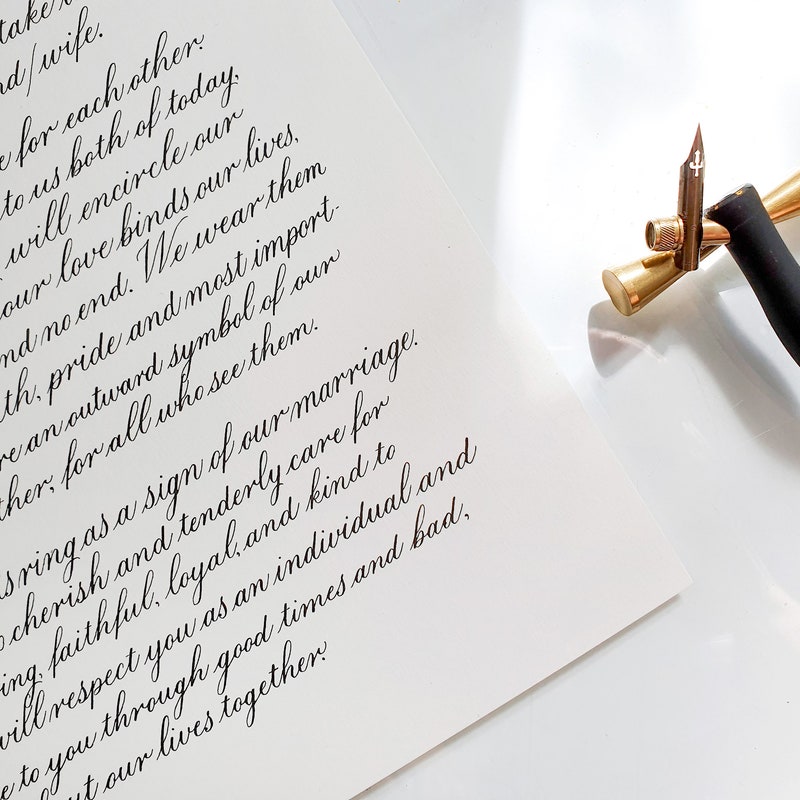 take
nd/wife.
e for each other.
to us both of today,
will encircle our
our love binds our lives,
nd no end. We wear them
th, pride and most import-
re an outward symbol of our
ther, for all who see them.
s ring as a sign of our marriage.
o cherish and tenderly care for
ing, faithful, loyal, and kind to
will respect you as an individual and
e to you through good times and bad,
ut our lives together.